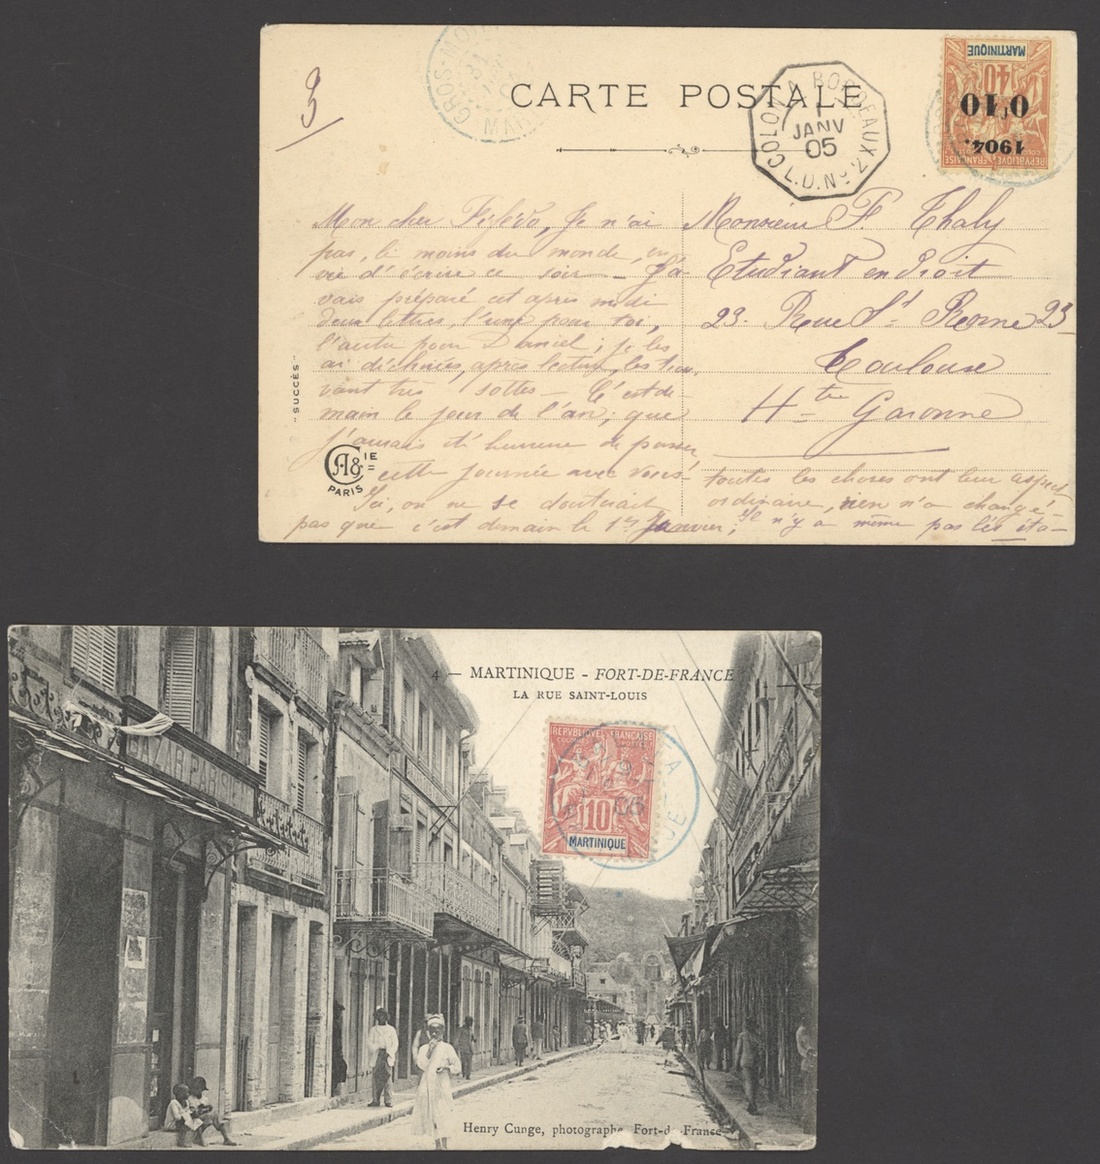 3
CARTE POSTALE
GROS-MO
MAR
COLON A BORDEAUX
1
JANV
05
L.D. No 2
MARTINIQUE
40
0f10
1904.
REPUBLIQUE FRANCAISE
Mon cher Fifédo, Je n'ai
pas, le moins du monde, en
vie d'écrire ce soir – J'a
vais préparé cet après midi
deux lettres, l'une pour toi,
l'autre pour Daniel; je les
ai déchirées, après lecture, les trou
vant très sottes – C'est de-
main le jour de l'an; que
j'aurais été heureux de passer
cette journée avec vous!
Ici, on ne se douterait
pas que c'est demain le 1er Janvier,
toutes les choses ont leur aspect
ordinaire, rien n'a changé-
Il n'y a même pas les éta-
Monsieur F. Thaly
Etudiant en droit
23. Rue St Rome 23
Toulouse
Hte Garonne
"SUCCÈS"
CA& IE
PARIS
4 — MARTINIQUE - FORT-DE-FRANCE
LA RUE SAINT-LOUIS
REPUBLIQUE FRANÇAISE
COLONIES POSTES
10
MARTINIQUE
Henry Cunge, photographe Fort-de France